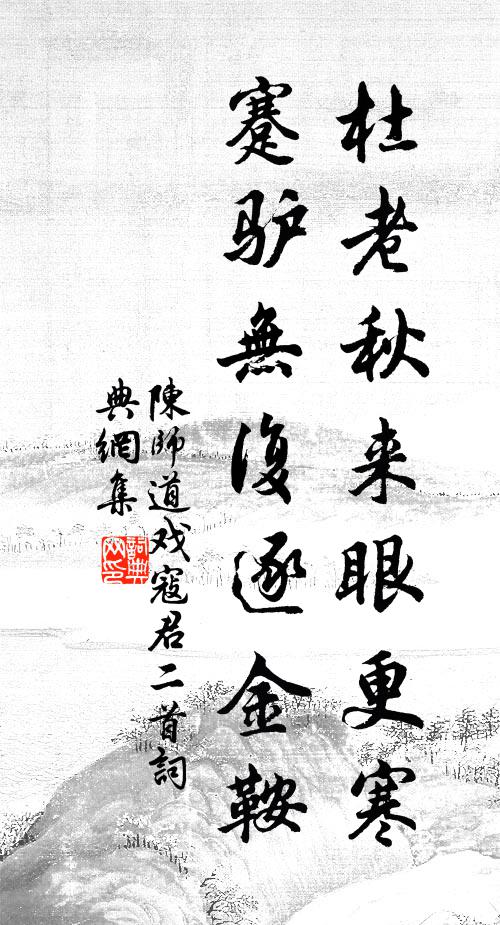 杜老秋来眼更寒
蹇驴無復逐金鞍
陳師道戏寇君二首詞
典網集
詞典網印